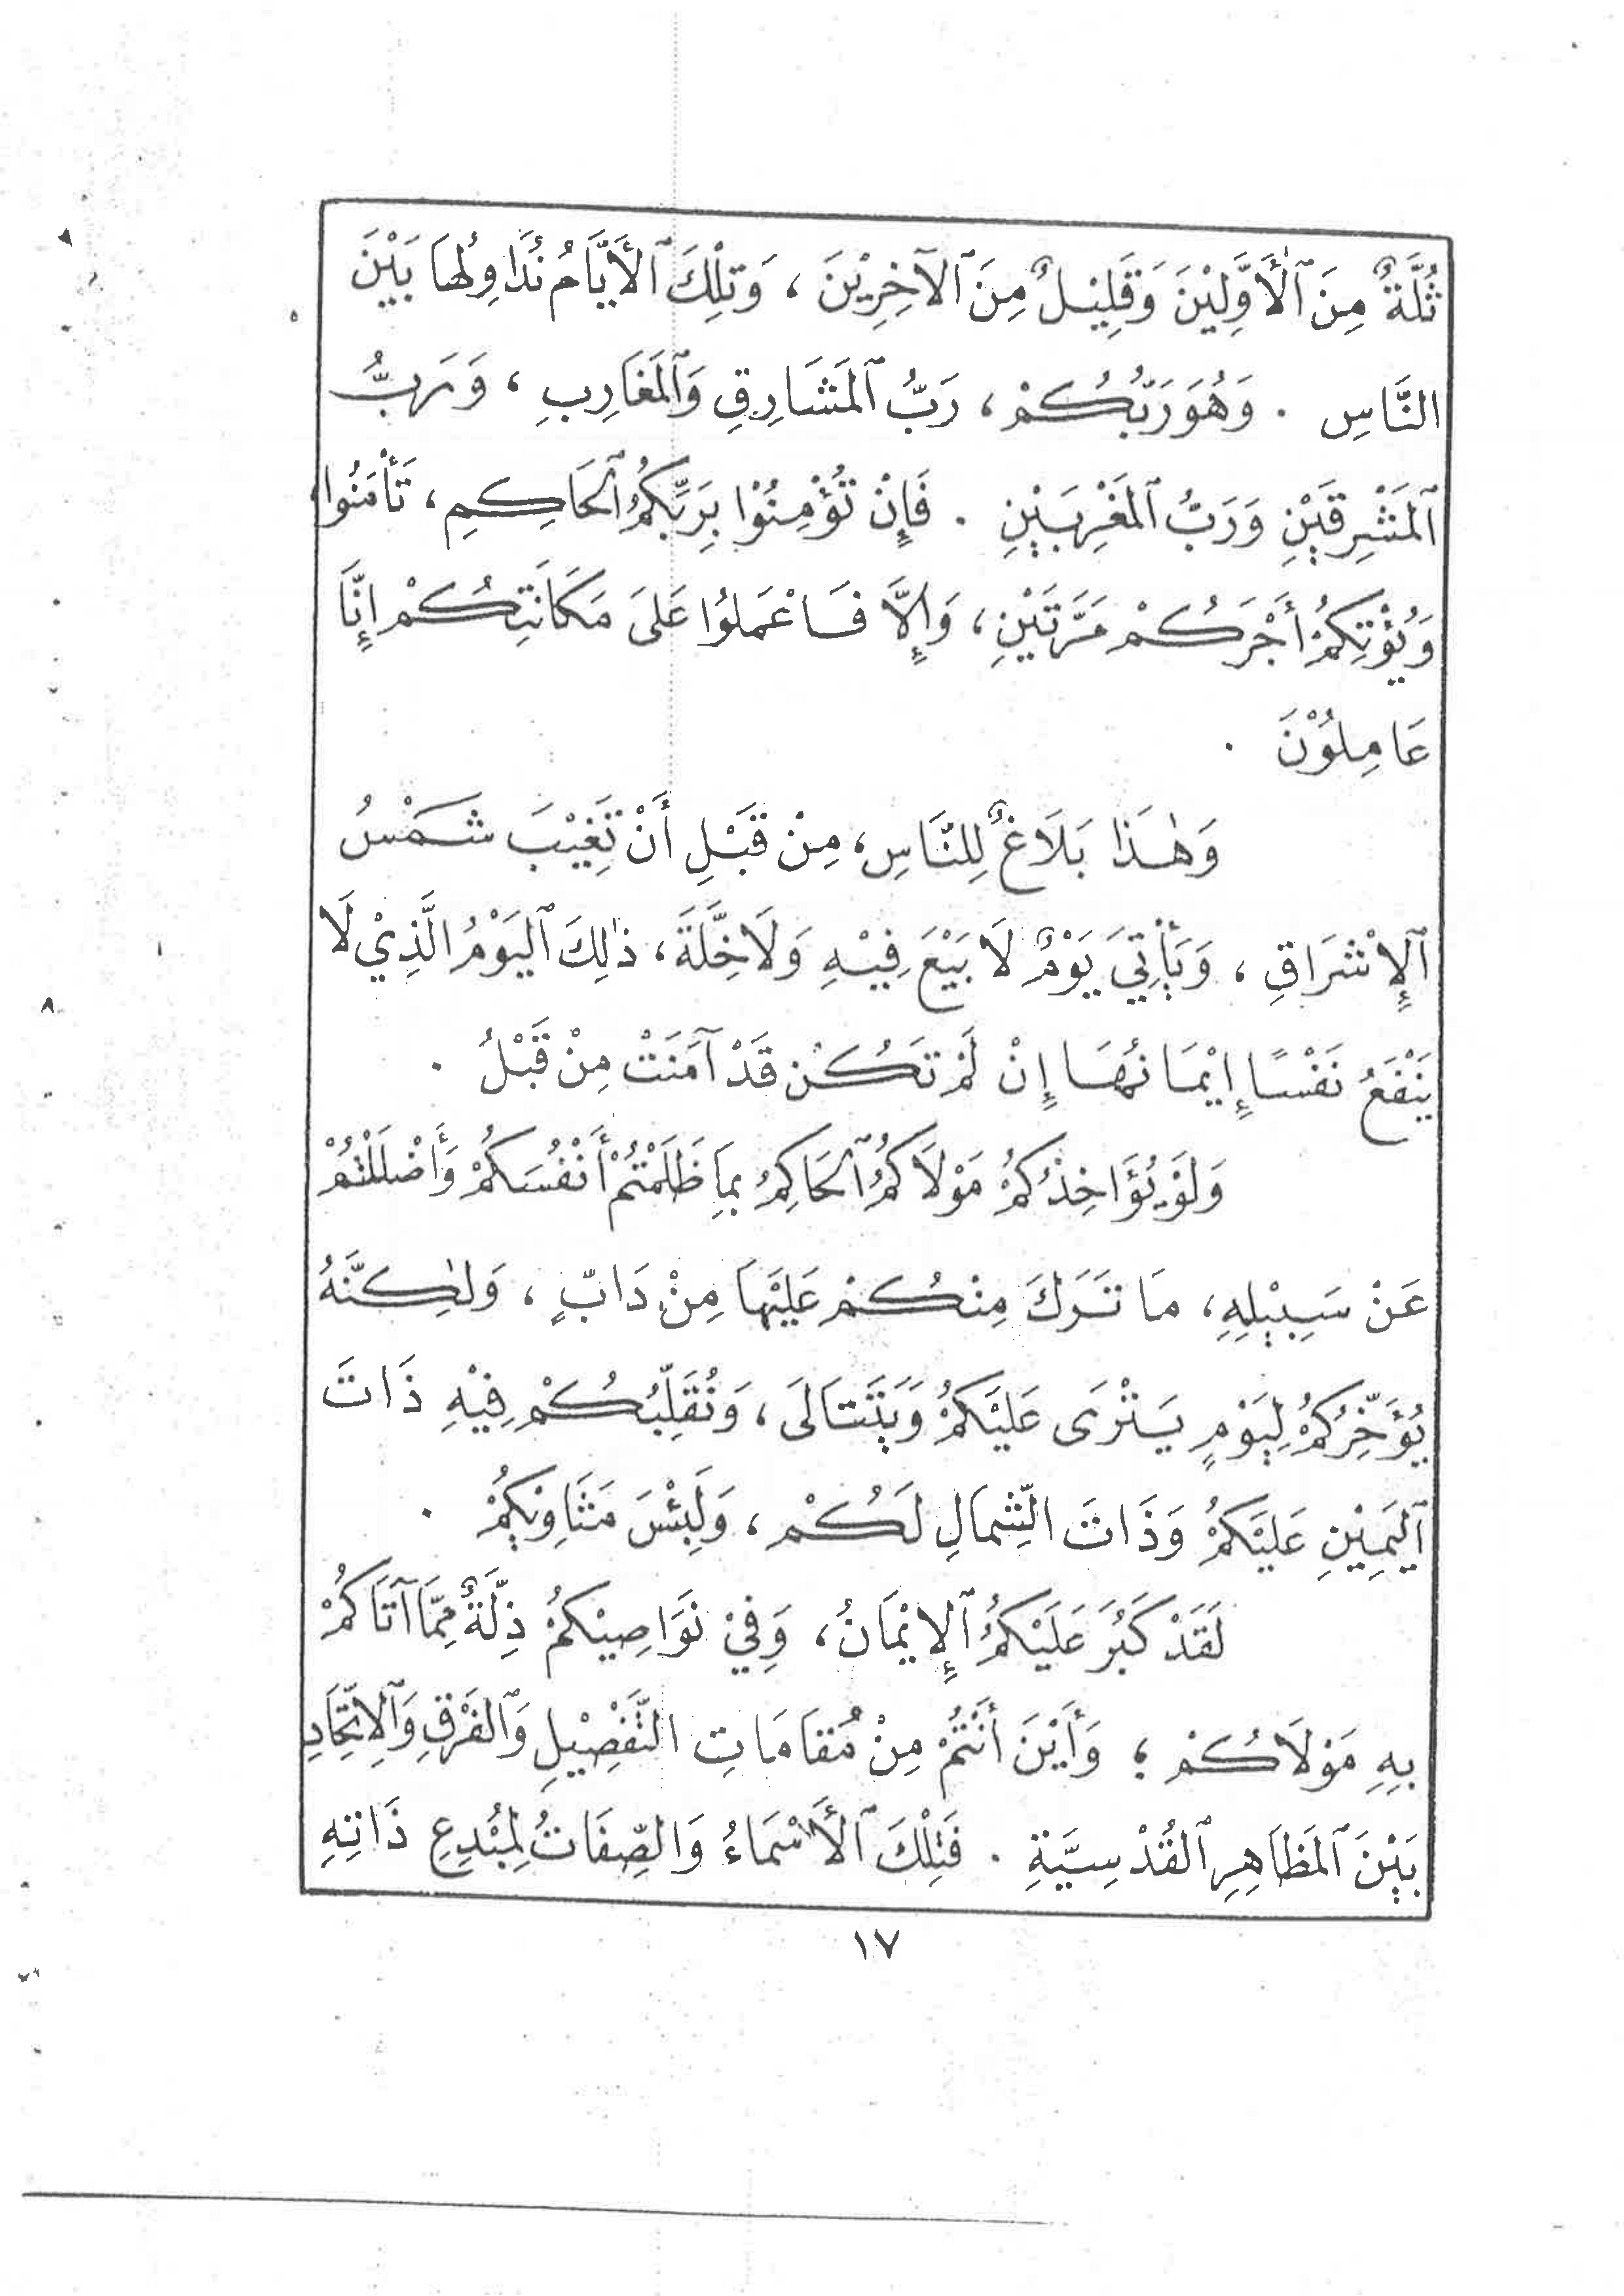 ثُلَّةٌ مِنَ ٱلْأَوَّلِيْنَ وَقَلِيْلٌ مِنَ ٱلآخِرِيْنَ ، وَتِلْكَ ٱلأَيَّامُ نُدَاوِلُهَا بَيْنَ
النَّاسِ . وَهُوَ رَبُّكُمْ ، رَبُّ ٱلمَشَارِقِ وَٱلمَغَارِبِ ، وَرَبُّ
ٱلمَشْرِقَيْنِ وَرَبُّ ٱلمَغْرِبَيْنِ . فَإِنْ تُؤْمِنُوْا بِرَبِّكُمُ ٱلحَاكِمِ ، تَأْمَنُوا
وَيُؤْتِكُمْ أَجْرَكُمْ مَرَّتَيْنِ ، وَإِلَّا فَاعْمَلُوا عَلَىَ مَكَانَتِكُمْ إِنَّا
عَامِلُوْنَ .
وَهٰذَا بَلَاغٌ لِلنَّاسِ ، مِنْ قَبْلِ أَنْ تَغِيْبَ شَمْسُ
ٱلإِشْرَاقِ ، وَيَأْتِيَ يَوْمٌ لَا بَيْعَ فِيْهِ وَلَا خِلَّةَ ، ذٰلِكَ ٱليَوْمُ الَّذِيْ لَا
يَنْفَعُ نَفْسًا إِيْمَانُهَا إِنْ لَمْ تَكُنْ قَدْ آمَنَتْ مِنْ قَبْلُ .
وَلَوْ يُؤَاخِذْكُمْ مَوْلَاكُمُ ٱلحَاكِمُ بِمَا ظَلَمْتُمْ أَنْفُسَكُمْ وَأَضْلَلْتُمْ
عَنْ سَبِيْلِهِ ، مَا تَرَكَ مِنْكُمْ عَلَيْهَا مِنْ دَابٍّ ، وَلٰكِنَّهُ
يُؤَخِّرُكُمْ لِيَوْمٍ يَتْرَى عَلَيْكُمْ وَيَتَتَالَى ، وَنُقَلِّبُكُمْ فِيْهِ ذَاتَ
ٱليَمِيْنِ عَلَيْكُمْ وَذَاتَ الشِّمَالِ لَكُمْ ، وَلَبِئْسَ مَثَاوِيْكُمْ .
لَقَدْ كَبُرَ عَلَيْكُمُ ٱلإِيْمَانُ ، وَفِيْ نَوَاصِيْكُمْ ذِلَّةٌ مِمَّا آتَاكُمْ
بِهِ مَوْلَاكُمْ ؛ وَأَيْنَ أَنْتُمْ مِنْ مُقَامَاتِ التَّفْصِيْلِ وَٱلفَرْقِ وَٱلِاتِّحَادِ
بَيْنَ ٱلمَظَاهِرِ ٱلقُدْسِيَّةِ . فَتِلْكَ ٱلأَسْمَاءُ وَالصِّفَاتُ لِمُبْدِعِ ذَاتِهِ
١٧